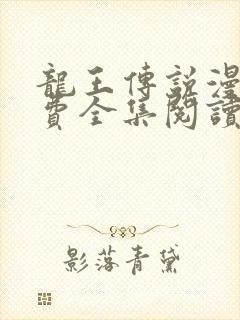 龍王傳說漫
費全集閱讀
影落青黛